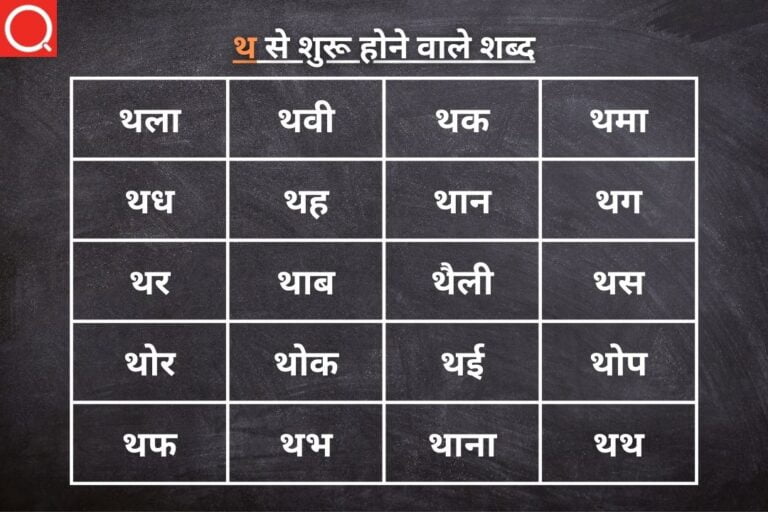 थ से शुरू होने वाले शब्द
थला थवी थक थमा
थध थह थान थग
थर थाब थैली थस
थोर थोक थई थोप
थफ थभ थाना थथ